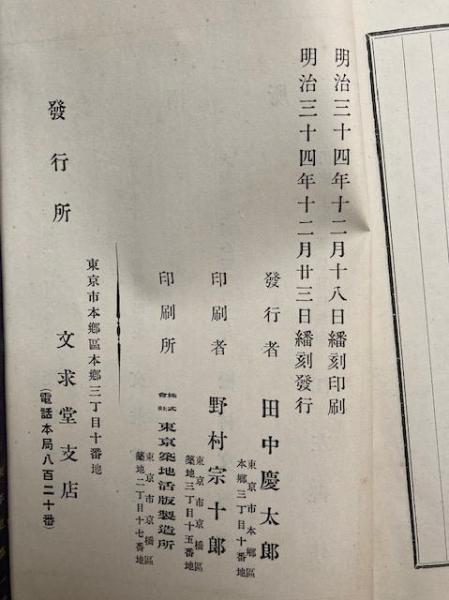 明治三十四年十二月十八日繙刻印刷
明治三十四年十二月廿三日繙刻發行
發行者 田中慶太郎
東京市本郷區
本郷三丁目十番地
印刷者 野村宗十郎
東京市京橋區
築地三丁目十五番地
印刷所 株式會社 東京築地活版製造所
東京市京橋區
築地二丁目十七番地
東京市本郷區本郷三丁目十番地
發行所 文求堂支店
(電話本局八百二十番)